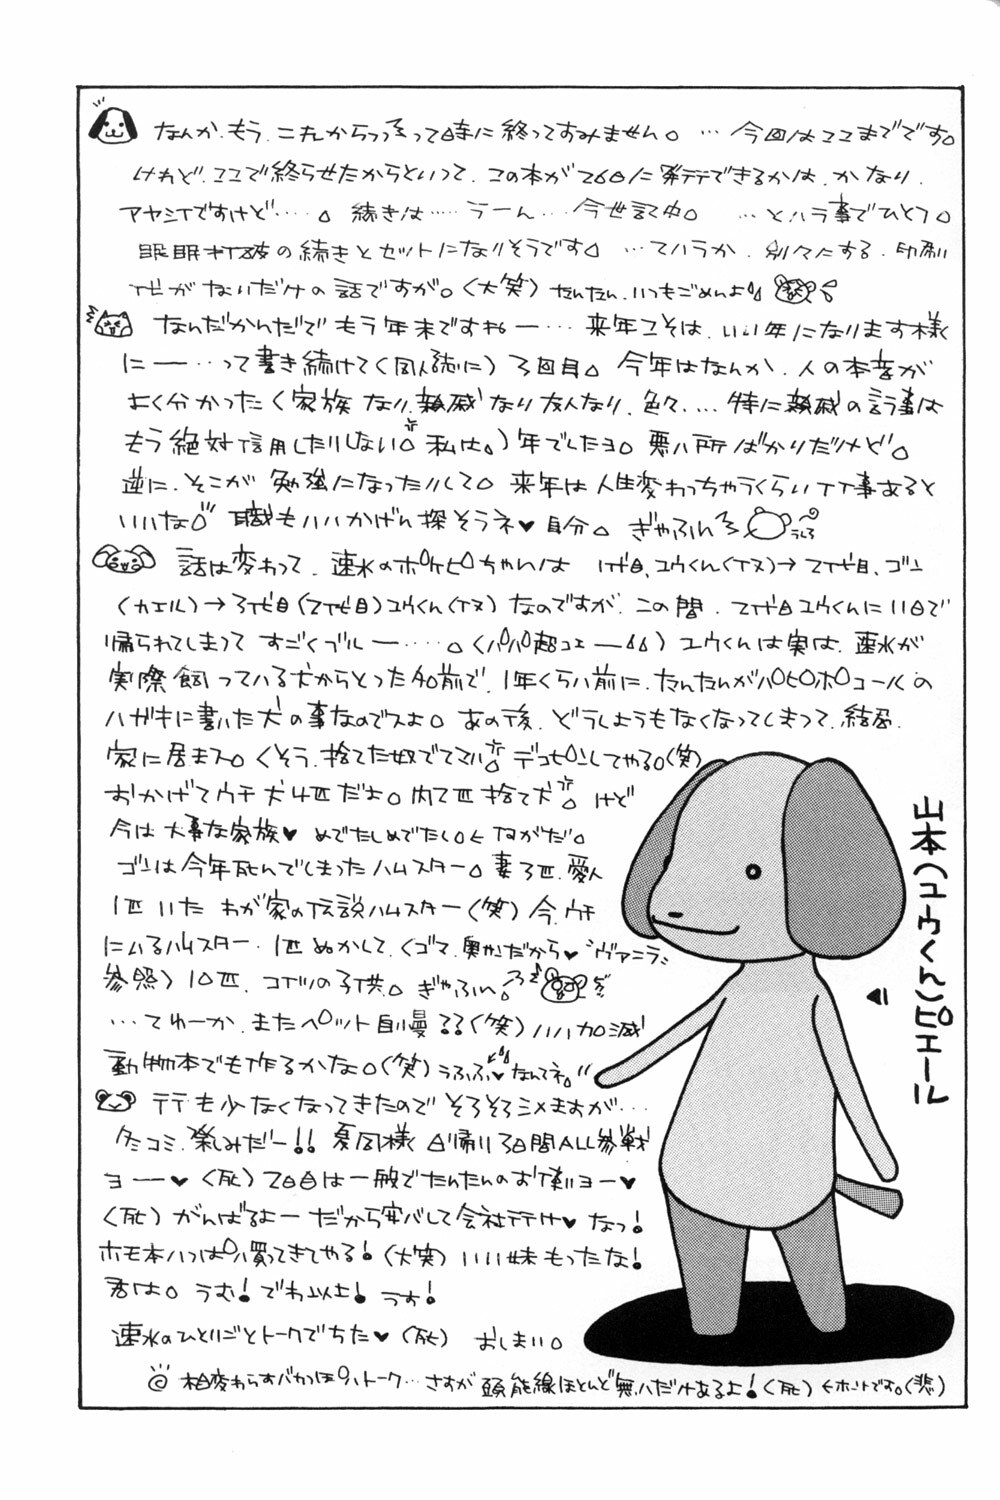 なんか、もう、これからっつう って時に 終ってすみません。… 今回はここまでです。
けれど、ここで終らせたからといって、この本が26日に発行できるかは、かなり、
アヤシイですけど……。続きは……うーん… 今世記中。 …とハラ事でひとつ。
眠眠打破の続きとセットになりそうです。…てハラか、別々にする、印刷
代がないだけの話ですが。(大笑) たんたん、いつもごめんよ
なんだかんだで もう年末ですねー… 来年こそは、いい年になります様
にー…って書き続けて(同人誌に) 3回目。今年はなんか、人の本音が
よく分かったく 家族 なり、親戚 なり 友人なり、色々… 特に親戚の言う事は
もう絶対信用したりしない。私は。)年でしたヨ。悪い所ばかりだけど。
逆に、そこが 勉強になったりして。来年は 人生変わっちゃうくらいイイ事あると
いいな 職もいいかげん探そうネ♥自分。 ぎゃふん うしろ
話は変わって、速水のポケピちゃんは 1代目、ユウくん(イヌ)→2代目、ゴン
(カエル)→3代目(2代目)ユウくん(イヌ) なのですが、この間、2代目ユウくんに11日で
帰られてしまって すごくブルー……。(パパ超コエー) ユウくんは実は、速水が
実際飼っている犬からとった名前で、1年くらい前に、たんたんがパピポコールの
ハガキに書いた犬の事なのでスよ。あの後、どうしようもなくなってしまって、結局、
家に居まス。くそう、捨てた奴でてこい。デコピンしてやる。(笑)
おかげでウチ犬4匹だよ。内2匹捨て犬。けど
今は大事な家族♥ めでたしめでたし。← ながだ。
ゴンは今年死んでしまったハムスター。妻3匹、愛人
1匹いた わが家の伝説ハムスター(笑) 今、ウチ
にいるハムスター、1匹ぬかして、(ゴマ、奥がだから♥ ヴァニラ
参照) 10匹、コイツの子供。ぎゃふん。
…てゆーか、またペット自慢??(笑) いい加減
動物本でも作るかな。(笑) うふふ♥ なんてネ。
行も少なくなってきたので そろそろシメますが…
冬コミ、楽しみだー!! 夏同様 日帰り3日間ALL参戦
ヨー♥ (死) 2日目は一般でたんたんのお使いヨー♥
(死) がんばるよー だから安心して会社行け♥ なっ!
ホモ本いっぱい買ってきてやる! (大笑) いい妹もったな!
君は。うむ! でわ以上! うす!
速水のひとりごとトークでちた♥ (死) おしまい。
相変わらずバカっぽいトーク… さすが 頭脳線ほとんど無いだけあるよ! (死) ←ホントです。(悲)
山本(ユウくん)ピエール